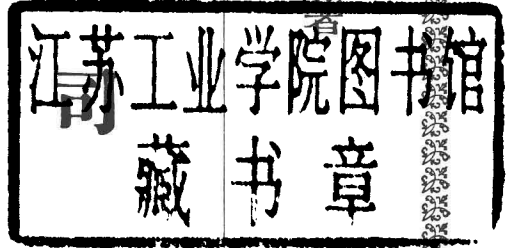 江苏工业学院图书馆
藏书章